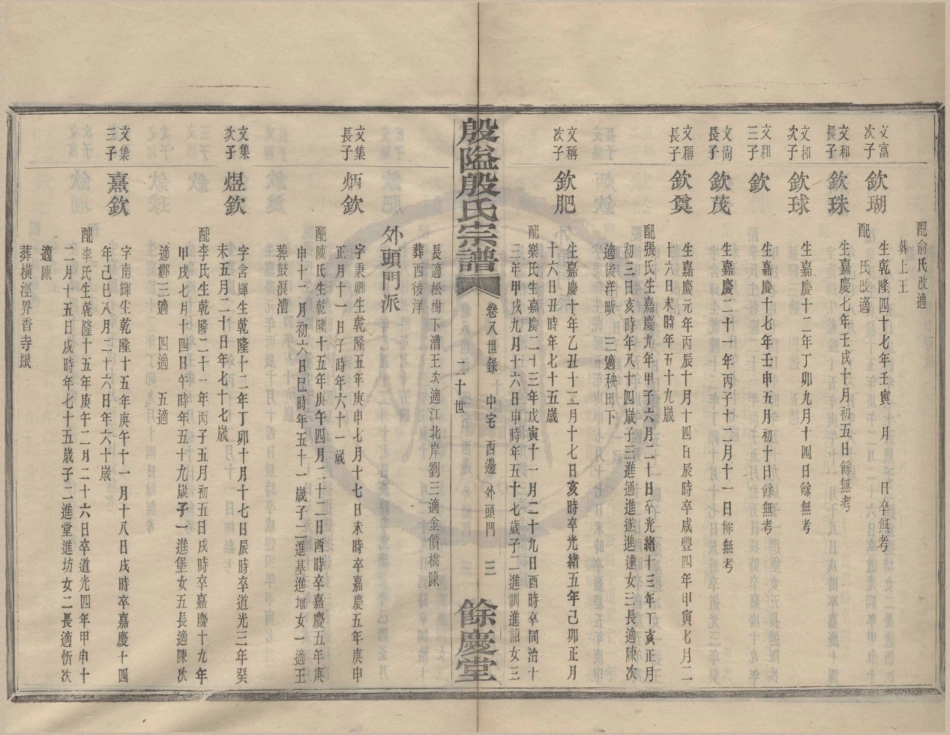 配俞氏改適
葬上王
文富次子
欽瑚
生乾隆四十七年壬寅 月 日卒無考
配 氏改適
文和長子
欽珠
生嘉慶七年壬戌十月初五日餘無考
文和次子
欽球
生嘉慶十二年丁卯九月十四日餘無考
文和三子
欽
生嘉慶十七年壬申五月初十日餘無考
文尚長子
欽茂
生嘉慶二十一年丙子十二月十一日餘無考
文稱長子
欽奠
生嘉慶元年丙辰十月十四日辰時卒咸豐四年甲寅七月二
十六日未時年五十九歲
配張氏生嘉慶九年甲子六月二十日卒光緒十三年丁亥正月
初三日亥時年八十四歲子三進通進遂進遠女三長適陳次
適後洋歐 三適秧田下
文稱次子
欽肥
生嘉慶十年乙丑十二月十七日亥時卒光緒五年己卯正月
十六日丑時年七十五歲
配樂氏生嘉慶二十三年戊寅十一月二十九日酉時卒同治十
三年甲戌九月十六日申時年五十七歲子二進訓進詔女三
殷隘殷氏宗譜
卷八世錄
中宅 西邊 外頭門
二十世
三
餘慶堂
長適松樹下漕王次適江北岸劉三適金價橋陳
葬西後洋
外頭門派
文集長子
炳欽
字秉卿生乾隆五年庚申七月十七日未時卒嘉慶五年庚申
正月十一日子時年六十一歲
配陳氏生乾隆十五年庚午四月二十二日酉時卒嘉慶五年庚
申十二月初六日巳時年五十一歲子二進基進增女一適王
葬鼓浪漕
文集次子
煜欽
字含輝生乾隆十二年丁卯十月十七日辰時卒道光三年癸
未五月二十日年七十七歲
配李氏生乾隆二十一年丙子五月初五日戌時卒嘉慶十九年
甲戌七月十四日午時年五十九歲子一進堡女五長適陳次
適鄭三適 四適 五適
文集三子
熹欽
字南輝生乾隆十五年庚午十一月十八日戌時卒嘉慶十四
年己巳八月二十六日年六十歲
配李氏生乾隆十五年庚午二月二十六日卒道光四年甲申十
二月十五日戌時年七十五歲子二進堂進坊女二長適忻次
適陳
葬橫涇界香寺跟